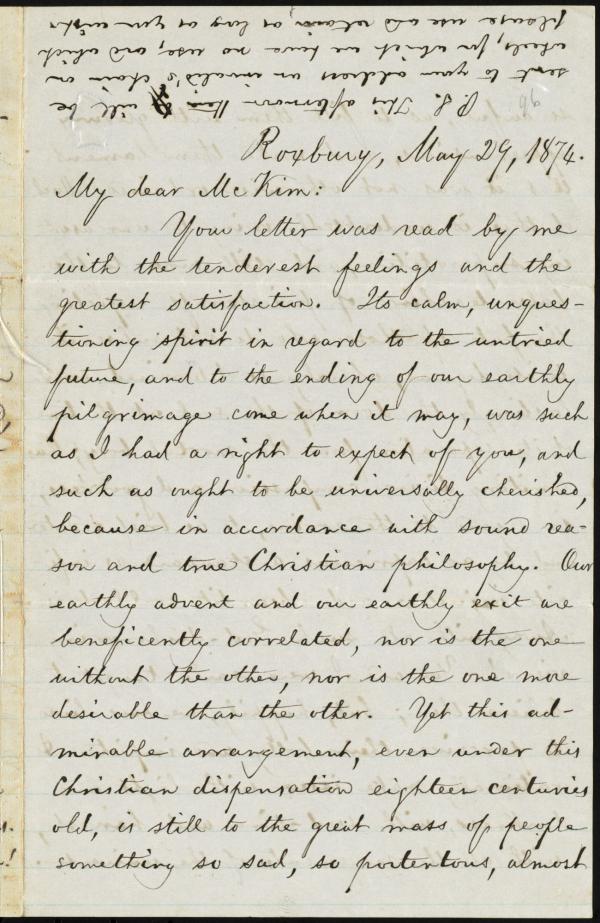 P.S. This afternoon there will be
sent to your address an invalid's chair on
wheels, for which we have no use, and which
please use and retain as long as you wish.
Roxbury, May 29, 1874.
My dear McKim:
Your letter was read by me
with the tenderest feelings and the
greatest satisfaction. Its calm, unques-
tioning spirit in regard to the untried
future, and to the ending of our earthly
pilgrimage come when it may, was such
as I had a right to expect of you, and
such as ought to be universally cherished,
because in accordance with sound rea-
son and true Christian philosophy. Our
earthly advent and our earthly exit are
beneficently correlated, nor is the one
without the other, nor is the one more
desirable than the other. Yet this ad-
mirable arrangement, even under this
Christian dispensation eighteen centuries
old, is still to the great mass of people
something so sad, so portentous, almost